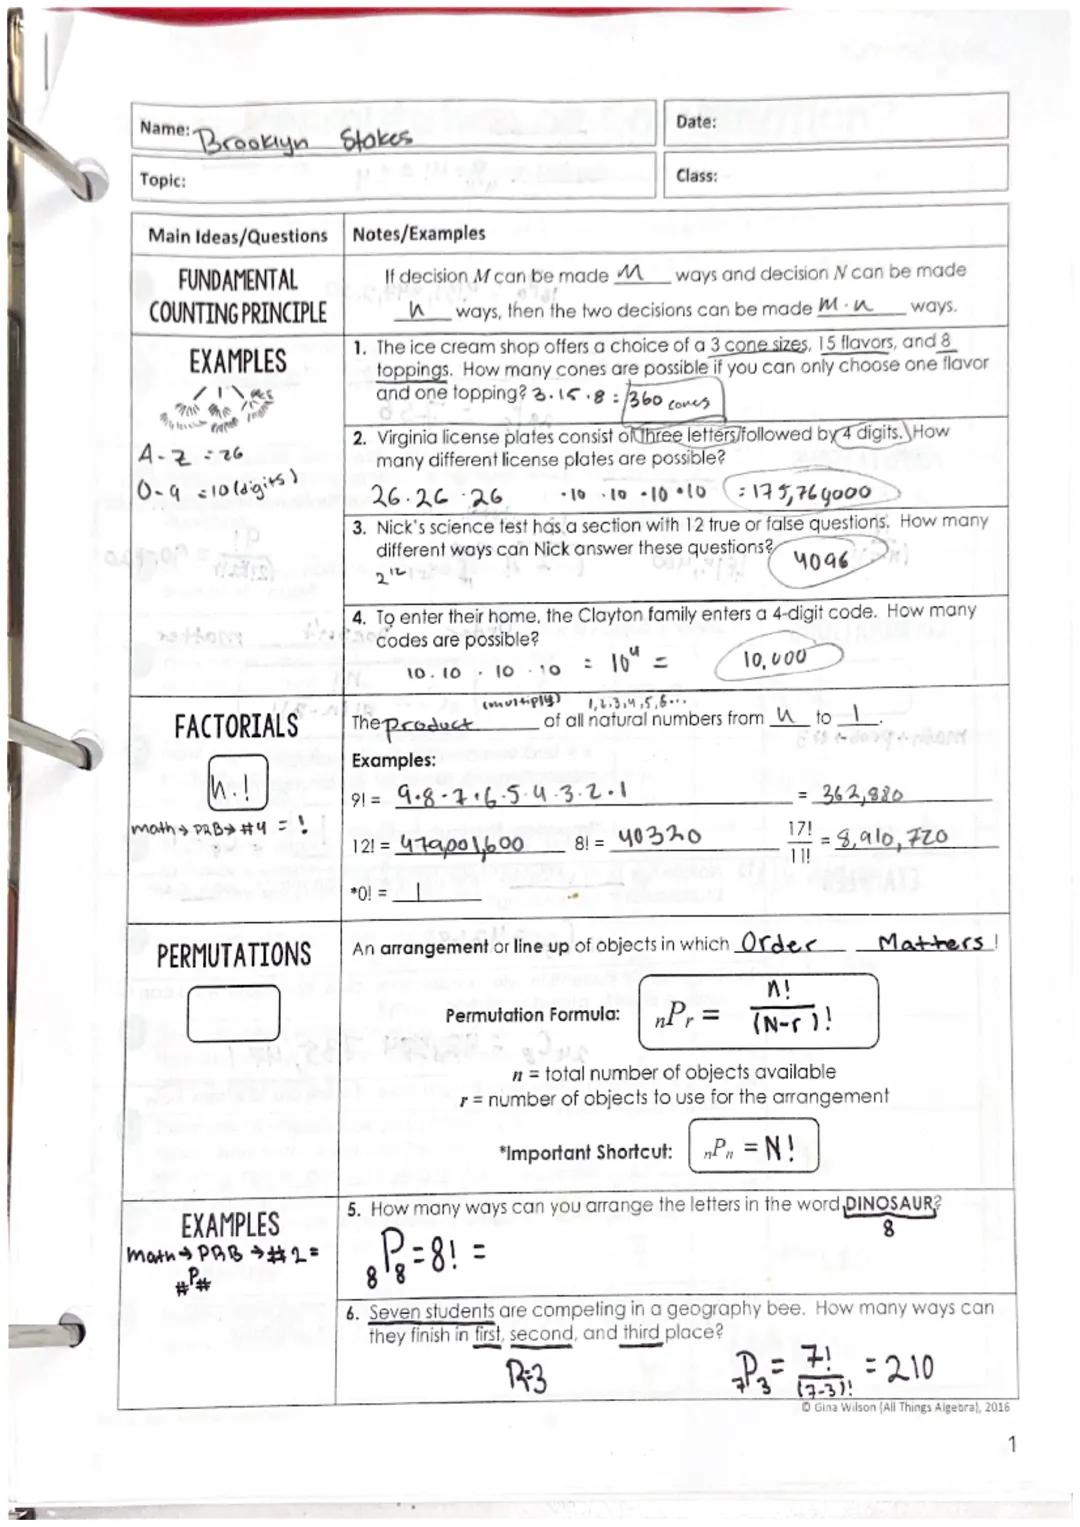 Name: Brooklyn Stokes
Date:
Topic:
Class:
Main Ideas/Questions
Notes/Examples
FUNDAMENTAL
COUNTING PRINCIPLE
If decision M can be made M ways and decision N can be made
n ways, then the two decisions can be made M·n ways.
EXAMPLES
A-Z = 26
0-9 = 10 (digits)
1. The ice cream shop offers a choice of a 3 cone sizes, 15 flavors, and 8
toppings. How many cones are possible if you can only choose one flavor
and one topping? 3·15·8 = 360 cones
2. Virginia license plates consist of three letters followed by 4 digits. How
many different license plates are possible?
26·26·26 ·10·10·10·10 = 175,760,000
3. Nick's science test has a section with 12 true or false questions. How many
different ways can Nick answer these questions? 4096
2¹²
4. To enter their home, the Clayton family enters a 4-digit code. How many
codes are possible?
10·10·10·10 = 10⁴ = 10,000
FACTORIALS
n.!
math→PRB→#4 = !
(multiply) 1,2,3,4,5,6...
The product of all natural numbers from n to 1.
Examples:
9! = 9·8·7·6·5·4·3·2·1 = 362,880
12! = 479,001,600 8! = 40320 17!/11! = 8,910,720
*0! = 1
PERMUTATIONS
An arrangement or line up of objects in which Order Matters!
Permutation Formula: nPr = n!/(N-r)!
n = total number of objects available
r = number of objects to use for the arrangement
*Important Shortcut: nPn = N!
EXAMPLES
math→PRB→#2 =
#P#
5. How many ways can you arrange the letters in the word DINOSAUR?
8
8P8 = 8! =
6. Seven students are competing in a geography bee. How many ways can
they finish in first, second, and third place?
R=3 7P3 = 7!/(7-3)! = 210
© Gina Wilson (All Things Algebra), 2016
1